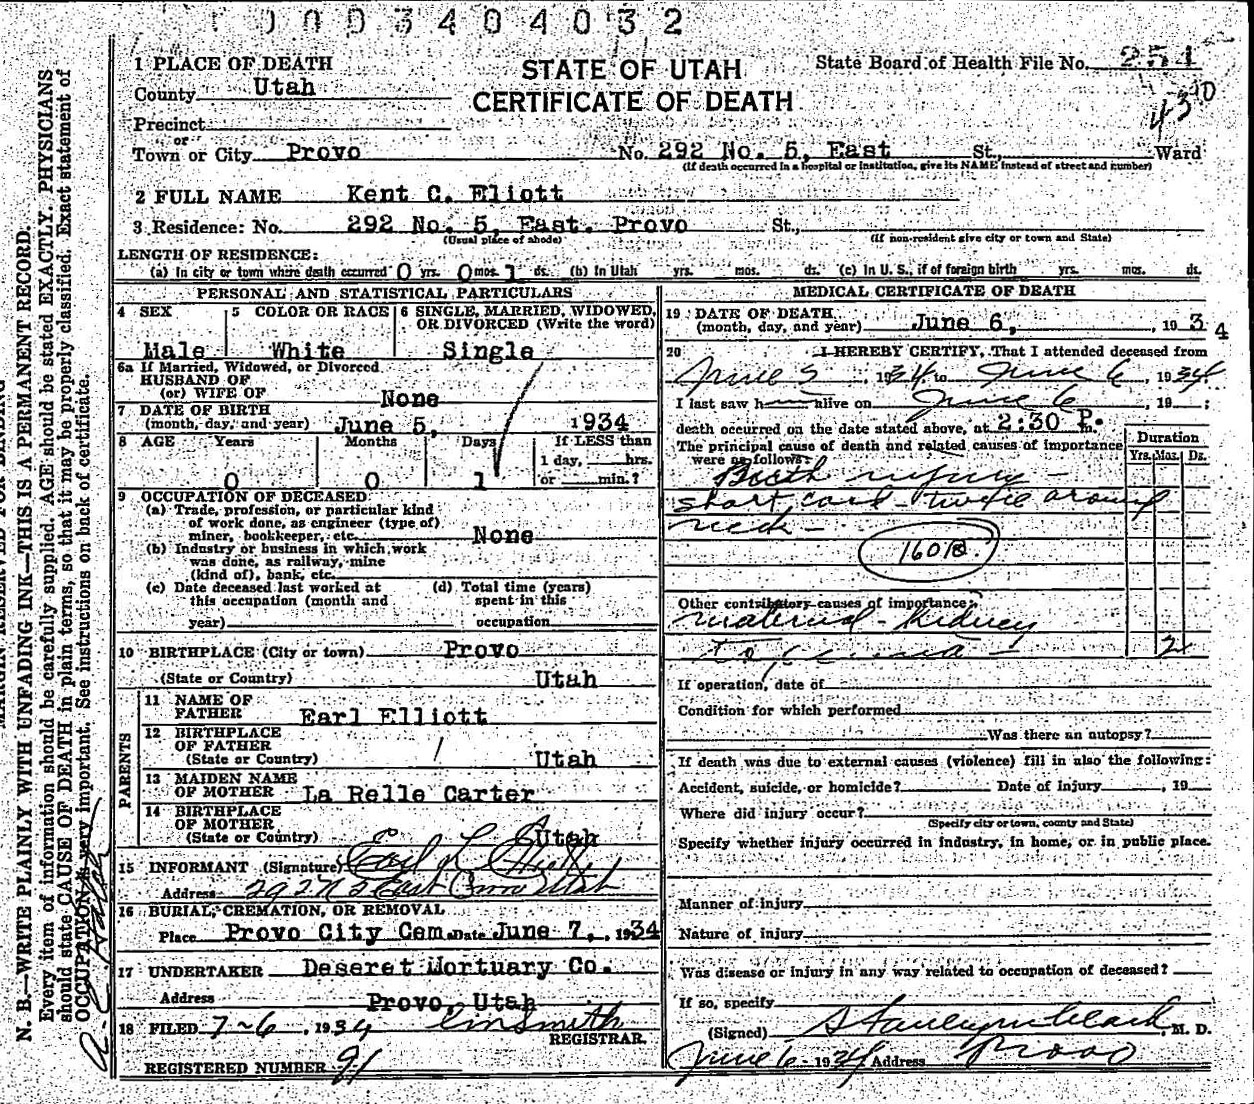 0003404032
STATE OF UTAH
CERTIFICATE OF DEATH
State Board of Health File No. 251
430
1 PLACE OF DEATH
County Utah
Precinct
or
Town or City Provo No. 292 No. 5, East St., Ward
(If death occurred in a hospital or institution, give its NAME instead of street and number)
2 FULL NAME Kent C. Eliott
3 Residence: No. 292 No. 5, East. Provo St.,
(Usual place of abode) (If non-resident give city or town and State)
LENGTH OF RESIDENCE:
(a) In city or town where death occurred 0 yrs. 0 mos. 1 ds. (b) In Utah yrs. mos. ds. (c) In U. S., if of foreign birth yrs. mos. ds.
PERSONAL AND STATISTICAL PARTICULARS
4 SEX 5 COLOR OR RACE 6 SINGLE, MARRIED, WIDOWED,
OR DIVORCED (Write the word)
Male White Single
6a If Married, Widowed, or Divorced
HUSBAND OF
(or) WIFE OF None
7 DATE OF BIRTH
(month, day, and year) June 5, 1934
8 AGE Years Months Days If LESS than
1 day, hrs.
0 0 1 or min.?
9 OCCUPATION OF DECEASED
(a) Trade, profession, or particular kind
of work done, as engineer (type of)
miner, bookkeeper, etc. None
(b) Industry or business in which work
was done, as railway, mine
(kind of), bank, etc.
(c) Date deceased last worked at (d) Total time (years)
this occupation (month and spent in this
year) occupation
10 BIRTHPLACE (City or town) Provo
(State or Country) Utah
PARENTS
11 NAME OF
FATHER Earl Elliott
12 BIRTHPLACE
OF FATHER
(State or Country) Utah
13 MAIDEN NAME
OF MOTHER La Relle Carter
14 BIRTHPLACE
OF MOTHER
(State or Country) Utah
15 INFORMANT (Signature) Earl L Elliott
Address 292 N 5 East Provo Utah
16 BURIAL, CREMATION, OR REMOVAL
Place Provo City Cem. Date June 7, 1934
17 UNDERTAKER Deseret Mortuary Co.
Address Provo, Utah
18 FILED 7-6, 1934 Smith
REGISTRAR.
REGISTERED NUMBER 91
MEDICAL CERTIFICATE OF DEATH
19 DATE OF DEATH
(month, day, and year) June 6, 1934
20 I HEREBY CERTIFY, That I attended deceased from
June 5, 1934 to June 6, 1934
I last saw h alive on June 6, 19 ;
death occurred on the date stated above, at 2:30 P. m.
The principal cause of death and related causes of importance
were as follows:
Duration
Yrs. Mos. Ds.
Birth injury -
short cord - twice around
neck -
160B.
Other contributory causes of importance:
maternal - Kidney
toxemia - 2
If operation, date of
Condition for which performed
Was there an autopsy?
If death was due to external causes (violence) fill in also the following:
Accident, suicide, or homicide? Date of injury , 19
Where did injury occur?
(Specify city or town, county and State)
Specify whether injury occurred in industry, in home, or in public place.
Manner of injury
Nature of injury
Was disease or injury in any way related to occupation of deceased?
If so, specify
(Signed) M. D.
June 6 - 1934 Address Provo
N. B.—WRITE PLAINLY WITH UNFADING INK—THIS IS A PERMANENT RECORD.
Every item of information should be carefully supplied. AGE should be stated EXACTLY. PHYSICIANS
should state CAUSE OF DEATH in plain terms, so that it may be properly classified. Exact statement of
OCCUPATION is very important. See instructions on back of certificate.